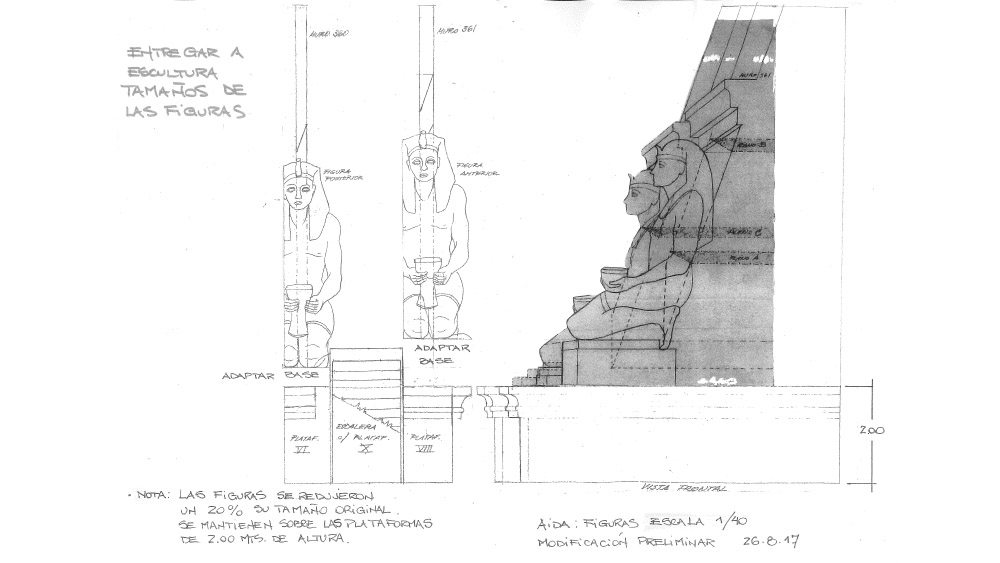 ENTREGAR A
ESCULTURA
TAMAÑOS DE
LAS FIGURAS
MURO 360
MURO 361
MURO 361
FIGURA
POSTERIOR
FIGURA
ANTERIOR
PLANO B
PLANO A
ADAPTAR
BASE
ADAPTAR BASE
ESCALERA
c/ PLATAF.
X
PLATAF.
VI
PLATAF.
VIII
2.00
VISTA FRONTAL
• NOTA: LAS FIGURAS SE REDUJERON
UN 20% SU TAMAÑO ORIGINAL.
SE MANTIENEN SOBRE LAS PLATAFORMAS
DE 2.00 MTS. DE ALTURA.
AIDA: FIGURAS ESCALA 1/40
MODIFICACIÓN PRELIMINAR 26.8.17